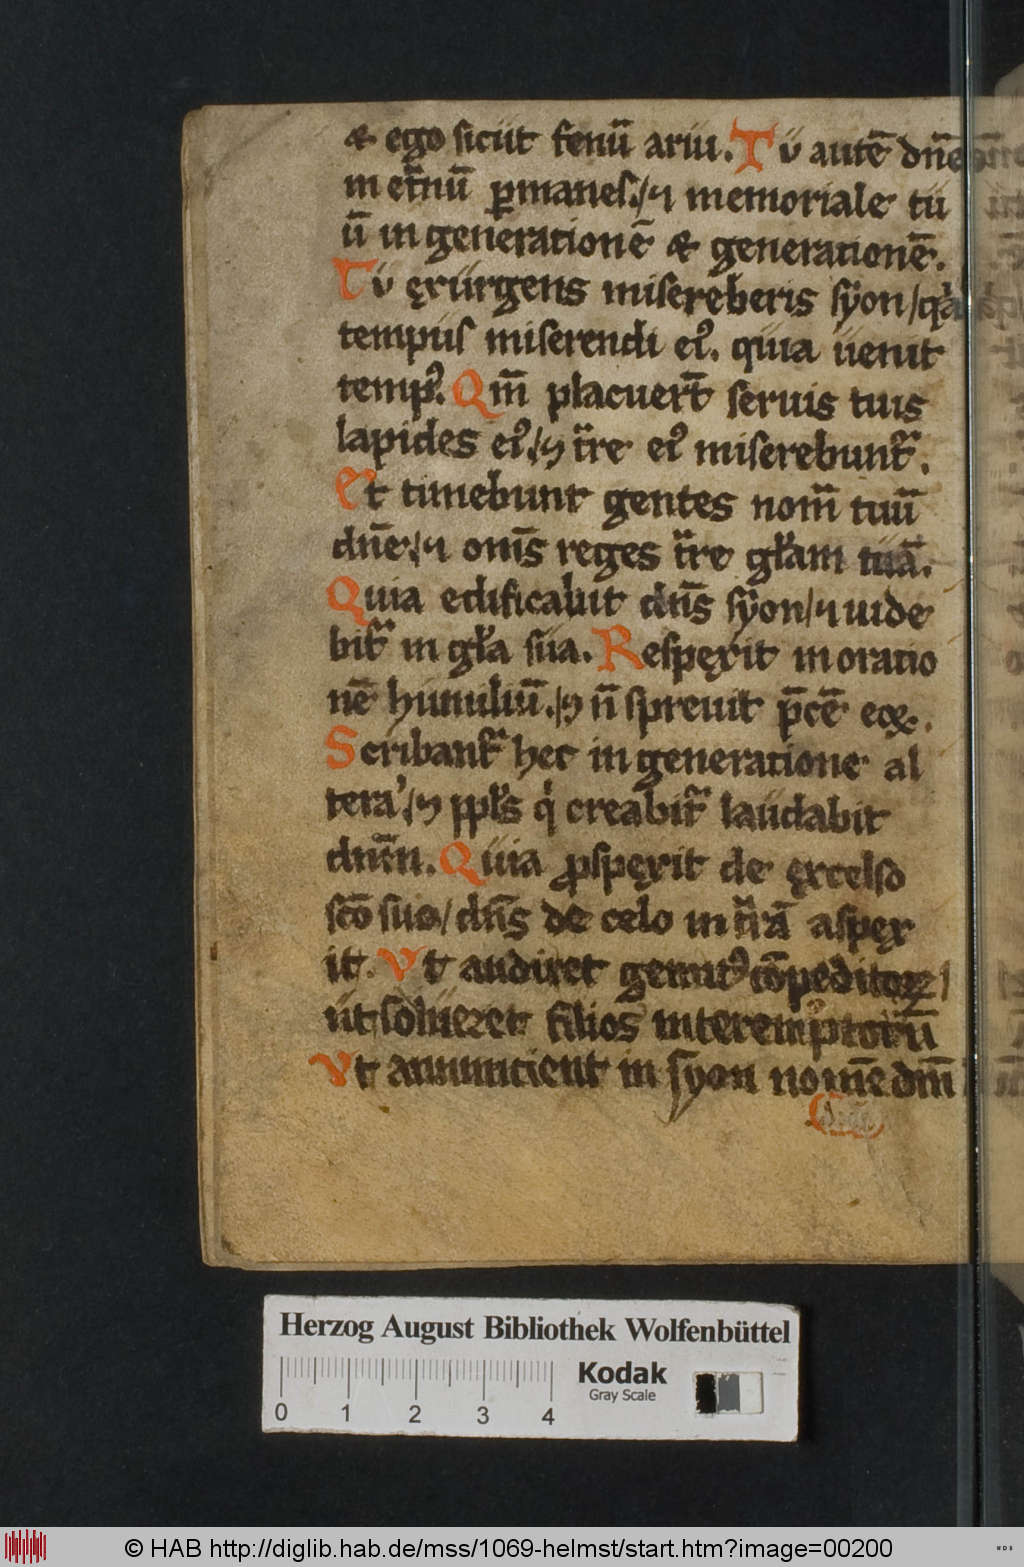 & ego sicut fenū ariu. Tu autē dn̄e
in et̄nū ꝑmanes./⁊ memoriale tu
ū in generationē & generationē.
Tu ęxurgens misereberis syon/q͛a
tempus miserendi eiꝰ. quia uenit
tempꝰ. Qm̄ placuer̄t seruis tuis
lapides eiꝰ/⁊ t̄re eiꝰ miserebunt᷑.
Et timebunt gentes nom̄ tuū
dn̄e/⁊ om̄s reges t̄re gl̄am tuā.
Quia edificabit dn̄s syon/⁊ uide
bit᷑ in gl̄a sua. Respęxit in oratio
nē humiliū./⁊ n̄ spreuit p̄cē eoꝝ.
Scribant᷑ hec in generatione al
tera/⁊ ppl̄s q͛ creabit᷑ laudabit
dnm̄. Quia ꝓspęxit de ęxcelso
sc̄o suo/dn̄s de celo in t̄rā aspęx
it. Vt audiret gemitꝰ cōpeditoꝝ/
ut solueret filios interemptorū
Vt annuncient in syon nom̄e dn̄i
Herzog August Bibliothek Wolfenbüttel
Kodak
Gray Scale
0 1 2 3 4
© HAB http://diglib.hab.de/mss/1069-helmst/start.htm?image=00200